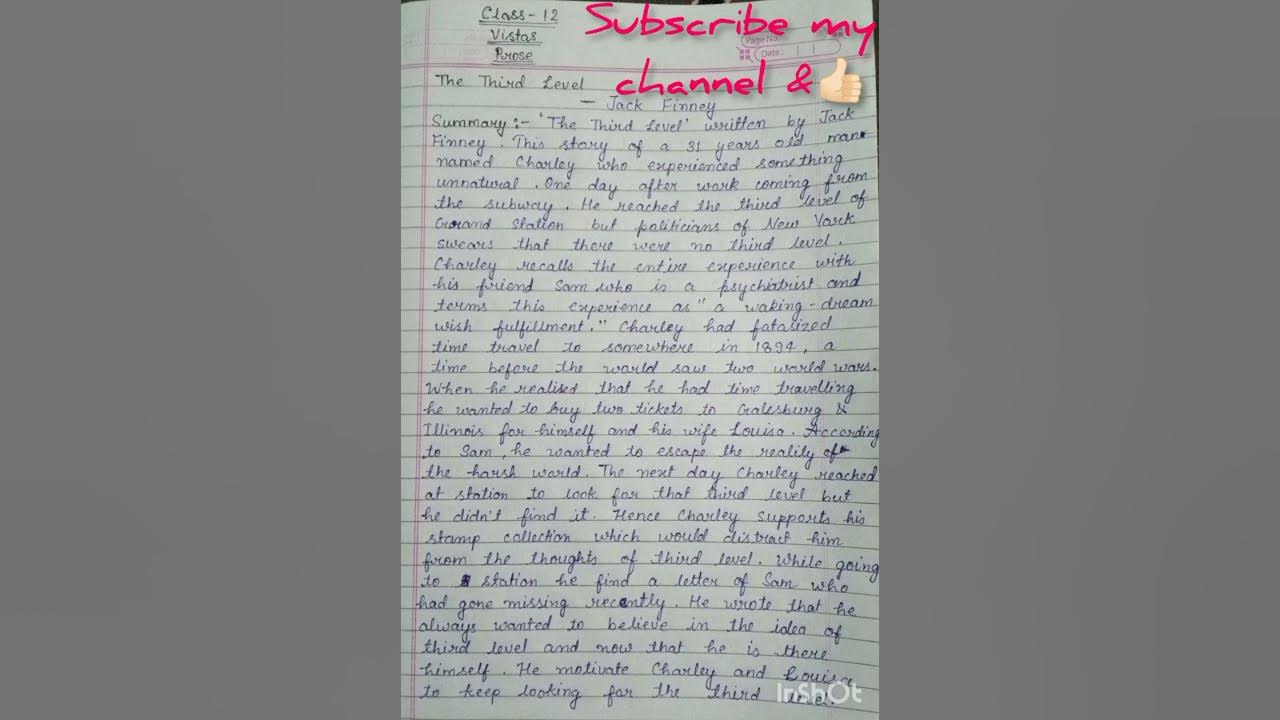 Class-12
Vistas
Prose
Subscribe my
channel &
Page No.
Date:
The Third Level
— Jack Finney
Summary :- 'The Third Level' written by Jack
Finney. This story of a 31 years old man
named Charley who experienced something
unnatural. One day after work coming from
the subway. He reached the third level of
Grand Station but politicians of New York
swears that there were no third level.
Charley recalls the entire experience with
his friend Sam who is a psychiatrist and
terms this experience as "a waking-dream
wish fulfillment." Charley had fatasized
time travel to somewhere in 1894, a
time before the world saw two world wars.
When he realised that he had time travelling
he wanted to buy two tickets to Galesburg &
Illinois for himself and his wife Louisa. According
to Sam, he wanted to escape the reality of
the harsh world. The next day Charley reached
at station to look for that third level but
he didn't find it. Hence Charley supports his
stamp collection which would distract him
from the thoughts of third level. While going
to station he find a letter of Sam who
had gone missing recently. He wrote that he
always wanted to believe in the idea of
third level and now that he is there
himself. He motivate Charley and Louisa
to keep looking for the third level.
InShOt